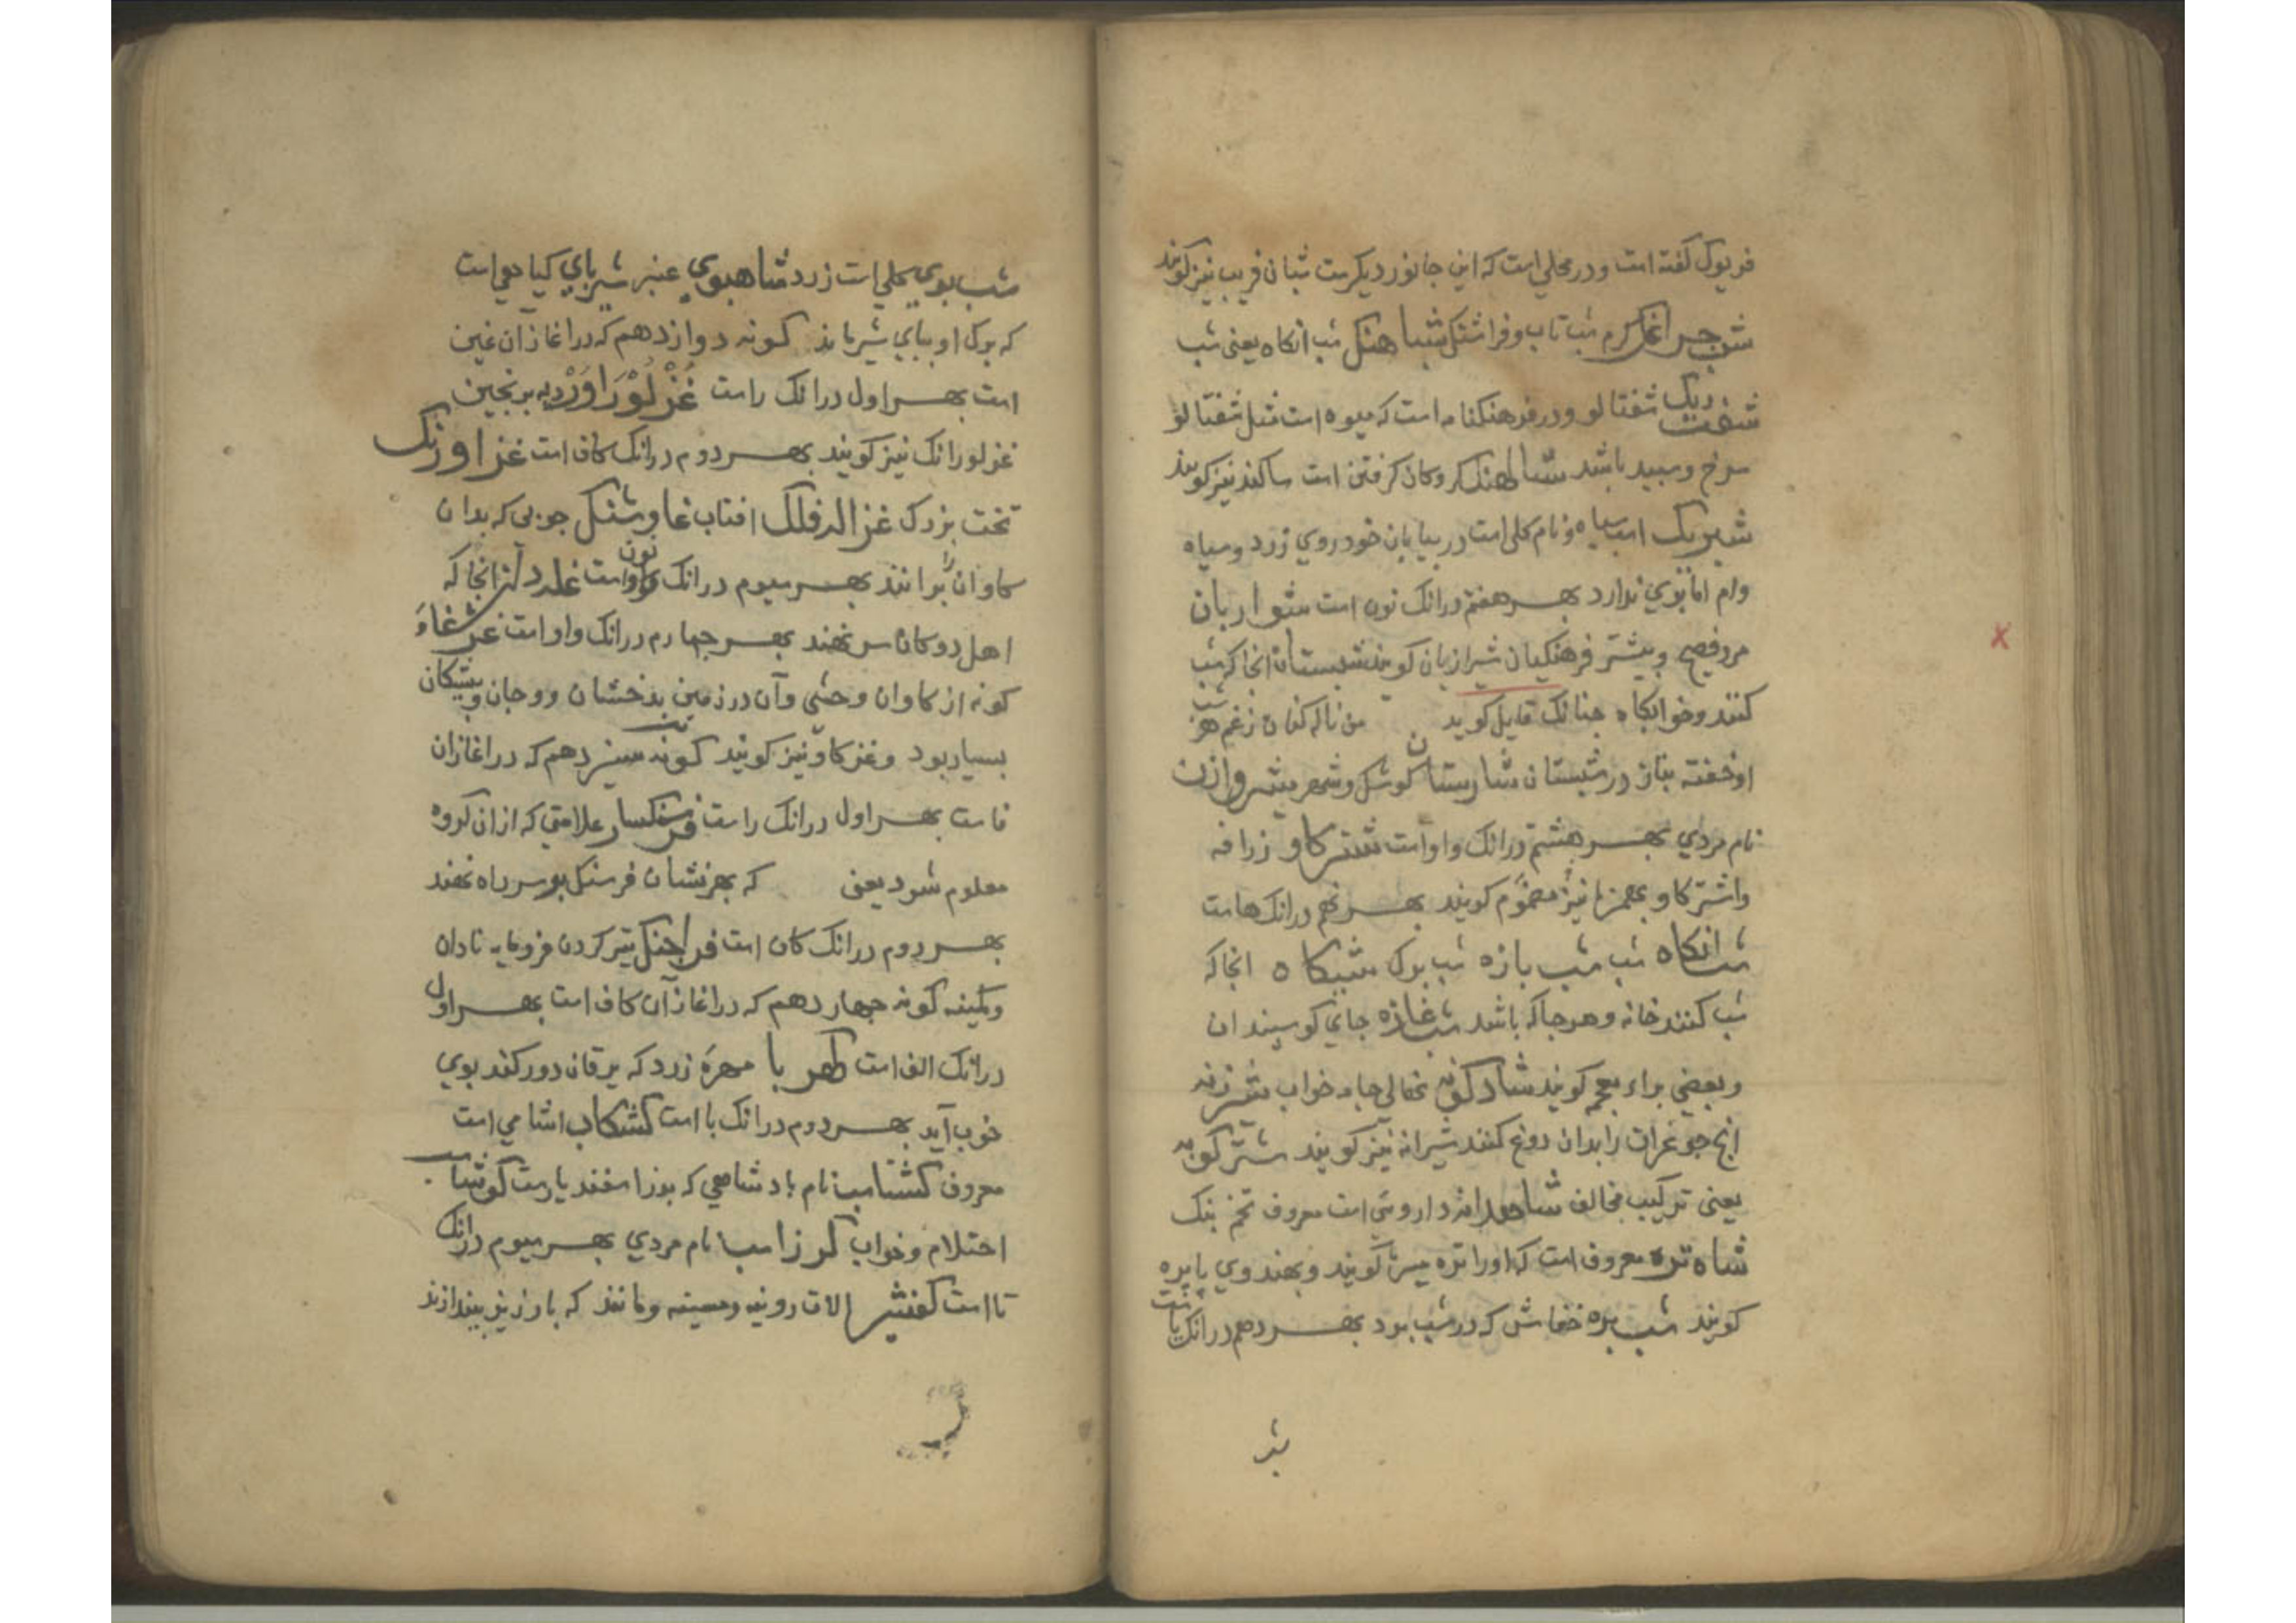 فریوک کفته است و در محلی است که این جانور دیکرست شبان فریب نیز کویند
شب چراغک کرم شب تاب و فراشتک شباهنک شب انکاه یعنی شب
دیک شفت شفتالو و در فرهنکنامه است که میوه است مثل شفتالو
سرخ و سپید باشد شالهنک کروکان کرفتن است سا کند نیز کویند
شبرنک اسپ سیاه و نام کلی است در بیابان خودروی زرد و سیاه
وام اما بوی ندارد بهر هفتم درانک نون است شواربان
مرد فصیح و بیشتر فرهنکیان شیرازبان کویند شبستان انجا که شب
کنند و خوابکاه چنانک قایل کوید من ناله کنان ز غم هر شب
او خفته بناز در شبستان شارستان کوشک و شهر شیروازن
نام مردی بهر هشتم درانک واو است شترکاو زرافه
واشترکاو بهمزه نیز مضموم کویند بهر نهم درانک هاست
شبانکاه شب شب بازه شب بوک شبیکاه انجا که
شب کنند خانه و هر جا که باشد شب غازه جای کوسپندان
و بعضی براء عجم کویند شادکونه نهالی جامه خواب شیرزنه
انچ جوغرات را بدان دوغ کنند شیرانه نیز کویند شترکونه
یعنی ترکیب مخالف شاهدانه داروئی است معروف تخم بنک
شاه تره معروف است که او را تره میره کویند و بهندوی پاپره
کویند شب پره خفاش که در شب بود بهر دهم درانک یاست
شب
شب بوی کلی است زرد شاهبوی عنبر شیرپای کیاهی است
که برک او بپای شیر ماند کونه دوازدهم که در اغاز آن غین
است بهر اول درانک راست غزلوراور دیه برنجین
غزلورانک نیز کویند بهر دوم درانک کاف است غزاورنک
تخت بزرک غزاله فلک افتاب غاوشنک چوبی که بدان
کاوان را برانند بهر سیوم درانک نون است غلردان انجا که
اهل دوکان سر نهند بهر چهارم درانک واو است غژغاو
کونه از کاوان وحشی و آن در زمین بدخشان و وجان و بتیکان
بسیار بود و غزکاو نیز کویند کونه سیزدهم که در اغاز ان
فاست بهر اول درانک راست فرسنکسار علامتی که از ان کروه
معلوم شود یعنی که بهر نشان فرسنک بر سر راه نهند
بهر دوم درانک کاف است فراچنک تیر کردن فرومایه نادان
و کمینه کونه چهاردهم که در اغاز آن کاف است بهر اول
درانک الف است کهربا مهره زرد که یرقان دور کند بوی
خوب آید بهر دوم درانک با است کشکاب اشامی است
معروف کشتاسب نام پادشاهی که پدر اسفندیارست کوشاسب
احتلام و خواب کرزاسب نام مردی بهر سیوم درانک
تا است کفشیر الات رویینه و مسینه و مانند که بارزیز بیندازند